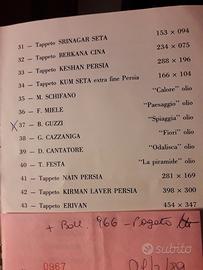 31 – Tappeto SRINAGAR SETA 153 × 094
32 – Tappeto BERKANA CINA 234 × 075
33 – Tappeto KESHAN PERSIA 288 × 196
34 – Tappeto KUM SETA extra fine Persia 166 × 104
35 – M. SCHIFANO "Calore" olio
36 – F. MIELE "Paesaggio" olio
X 37 – B. GUZZI "Spiaggia" olio
38 – G. CAZZANIGA "Fiori" olio
39 – D. CANTATORE "Odalisca" olio
40 – T. FESTA "La piramide" olio
41 – Tappeto NAIN PERSIA 281 × 169
42 – Tappeto KIRMAN LAVER PERSIA 398 × 300
43 – Tappeto ERIVAN 454 × 347
+ Boll. 966 - Pagato
0967
subito